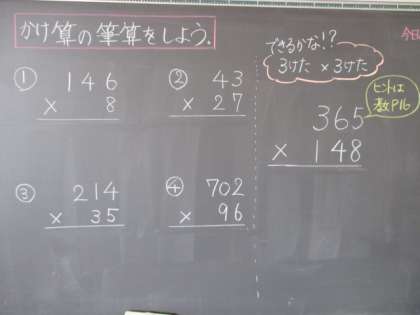 かけ算の筆算をしよう.
① 146
× 8
② 43
× 27
③ 214
× 35
④ 702
× 96
できるかな!?
3けた×3けた
365
× 148
ヒントは
教P16
今日